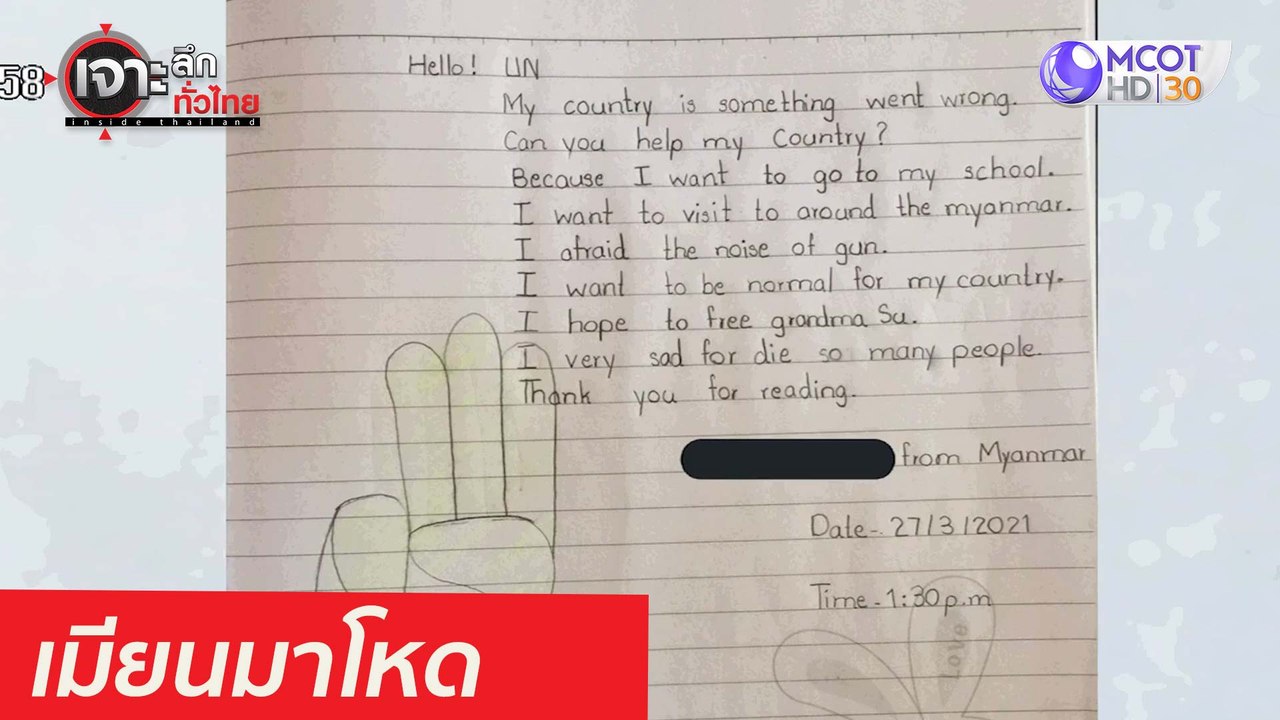 58
เจาะลึกทั่วไทย
inside thailand
MCOT
HD 30
Hello! UN
My country is something went wrong.
Can you help my Country?
Because I want to go to my school.
I want to visit to around the myanmar.
I afraid the noise of gun.
I want to be normal for my country.
I hope to free grandma Su.
I very sad for die so many people.
Thank you for reading.
from Myanmar
Date-. 27/3/2021
Time-1:30p.m
Love
เมียนมาโหด